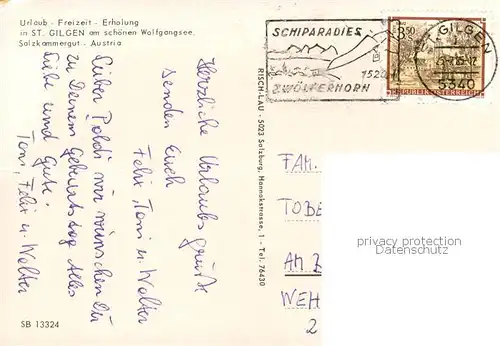 Urlaub - Freizeit - Erholung
in ST. GILGEN am schönen Wolfgangsee
Salzkammergut - Austria
Herzliche Urlaubsgrüße
senden Euch
Felix, Toni u. Walter
Lieber Poldi wir wünschen Dir
zu Deinem Geburtstag Alles
Liebe und Gute.
Toni, Felix u. Walter
SB 13324
RISCH-LAU - 5023 Salzburg, Hannakstrasse, 1 - Tel. 76430
SCHIPARADIES
1520
ZWÖLFERHORN
3.50
REPUBLIK ÖSTERREICH
GILGEN
5340
FAM.
TOBE
AM
WEH
2
privacy protection
Datenschutz